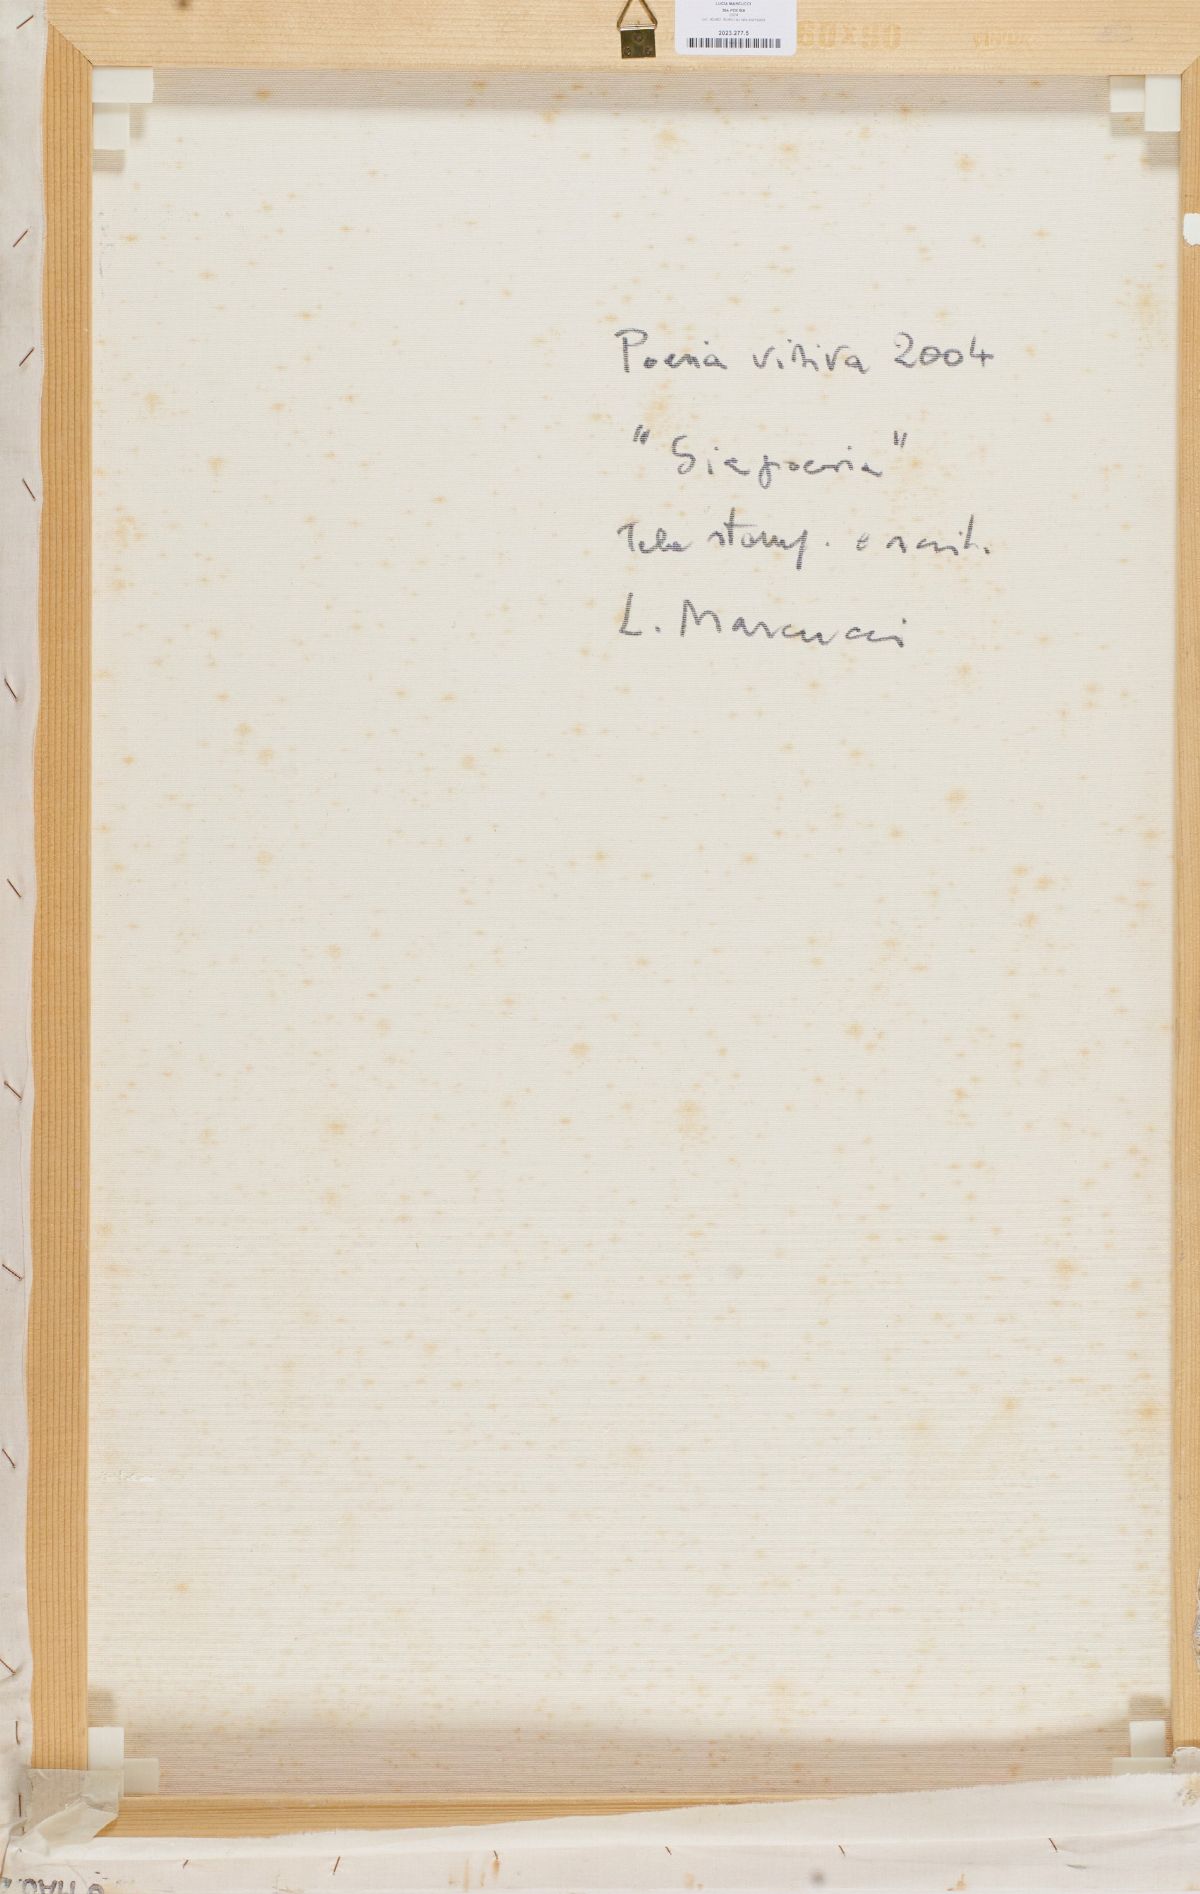 LUCIA MARCUCCI
SIA POESIA
2004
2023.277.5
Poesia visiva 2004
"Siapoesia"
Tela stamp. e scrit.
L. Marcucci